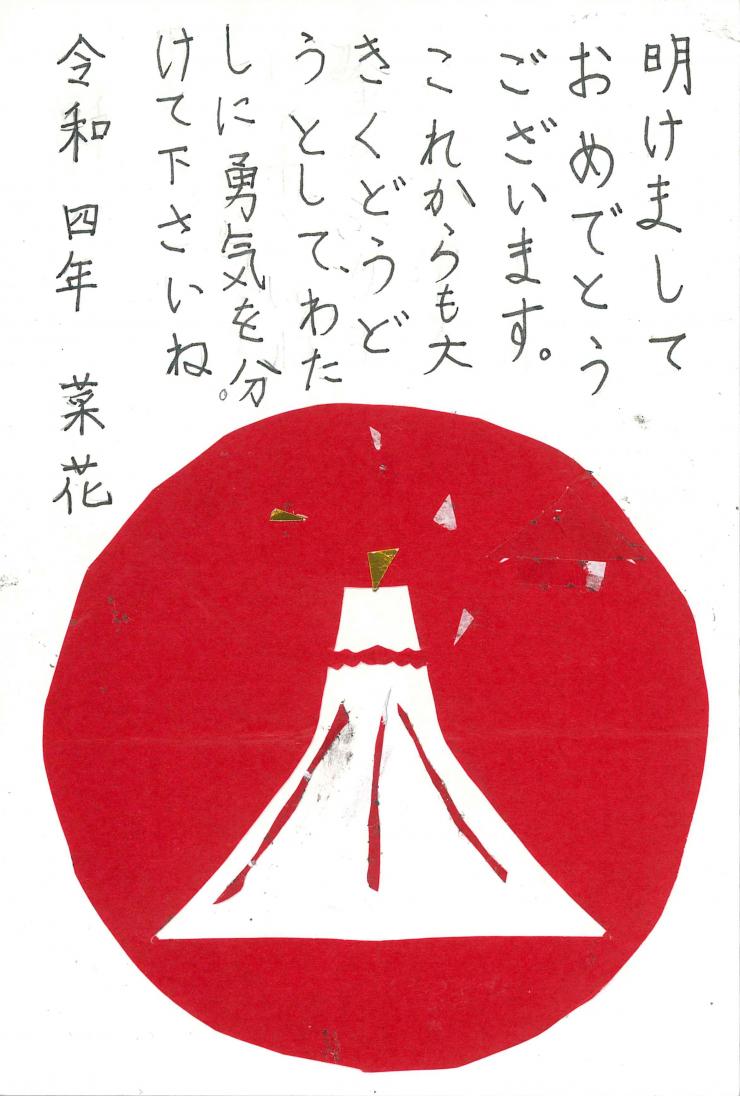 明けまして
おめでとう
ございます。
これからも大
きくどうど
うとして、わた
しに勇気を分
けて下さいね。
令和四年 菜花